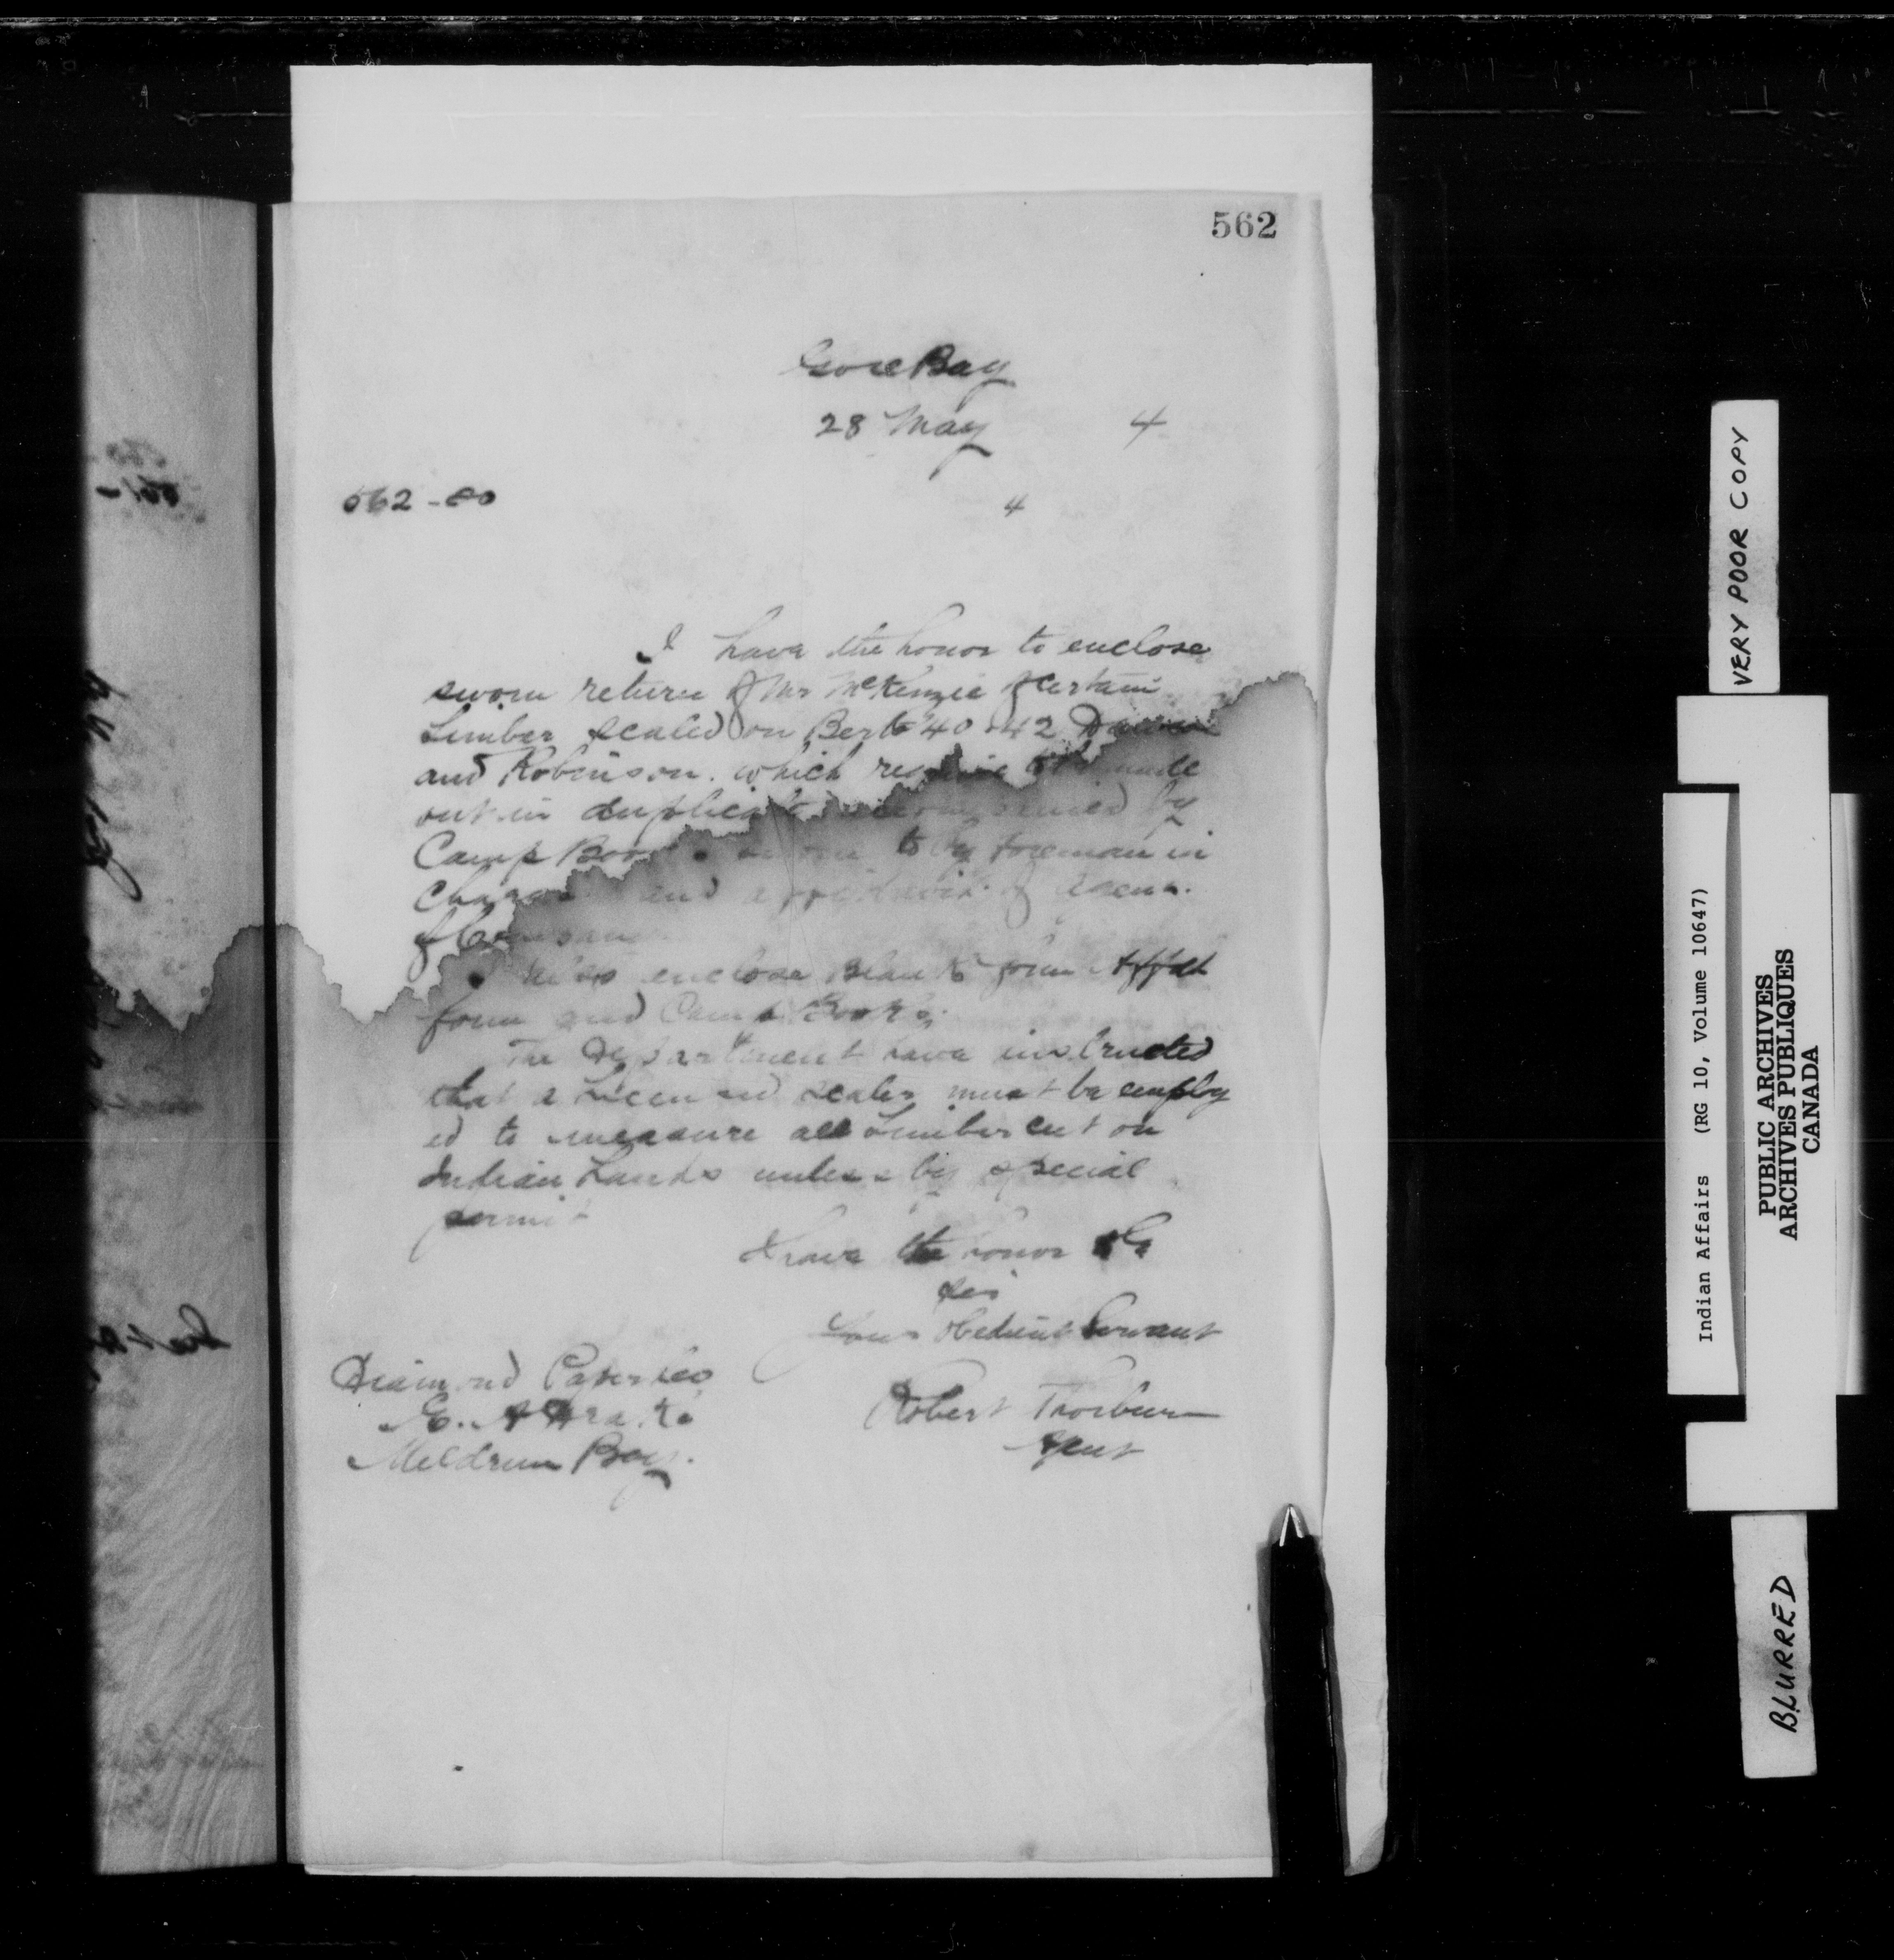 562
Gore Bay
28 May 4
562-80
4
I have the honor to enclose
sworn return of Mr McKenzie of Certain
Timber scaled on Berth 40 & 42 Dawson
and Robinson. which require to be made
out in duplicate accompanied by
Camp Book sworn to by foreman in
Charge and affidavit of
I also enclose Blank form Affdt
form and Camp Books.
The Department have instructed
that a Licensed scaler must be employ
ed to measure all Timber cut on
Indian Lands unless by special
permit
I have the honor
Sir
Your Obedient Servant
Robert Thorburn
Agent
Diamond Paper Co
E. A
Meldrum Bay.
VERY POOR COPY
Indian Affairs (RG 10, Volume 10647)
PUBLIC ARCHIVES
ARCHIVES PUBLIQUES
CANADA
BLURRED